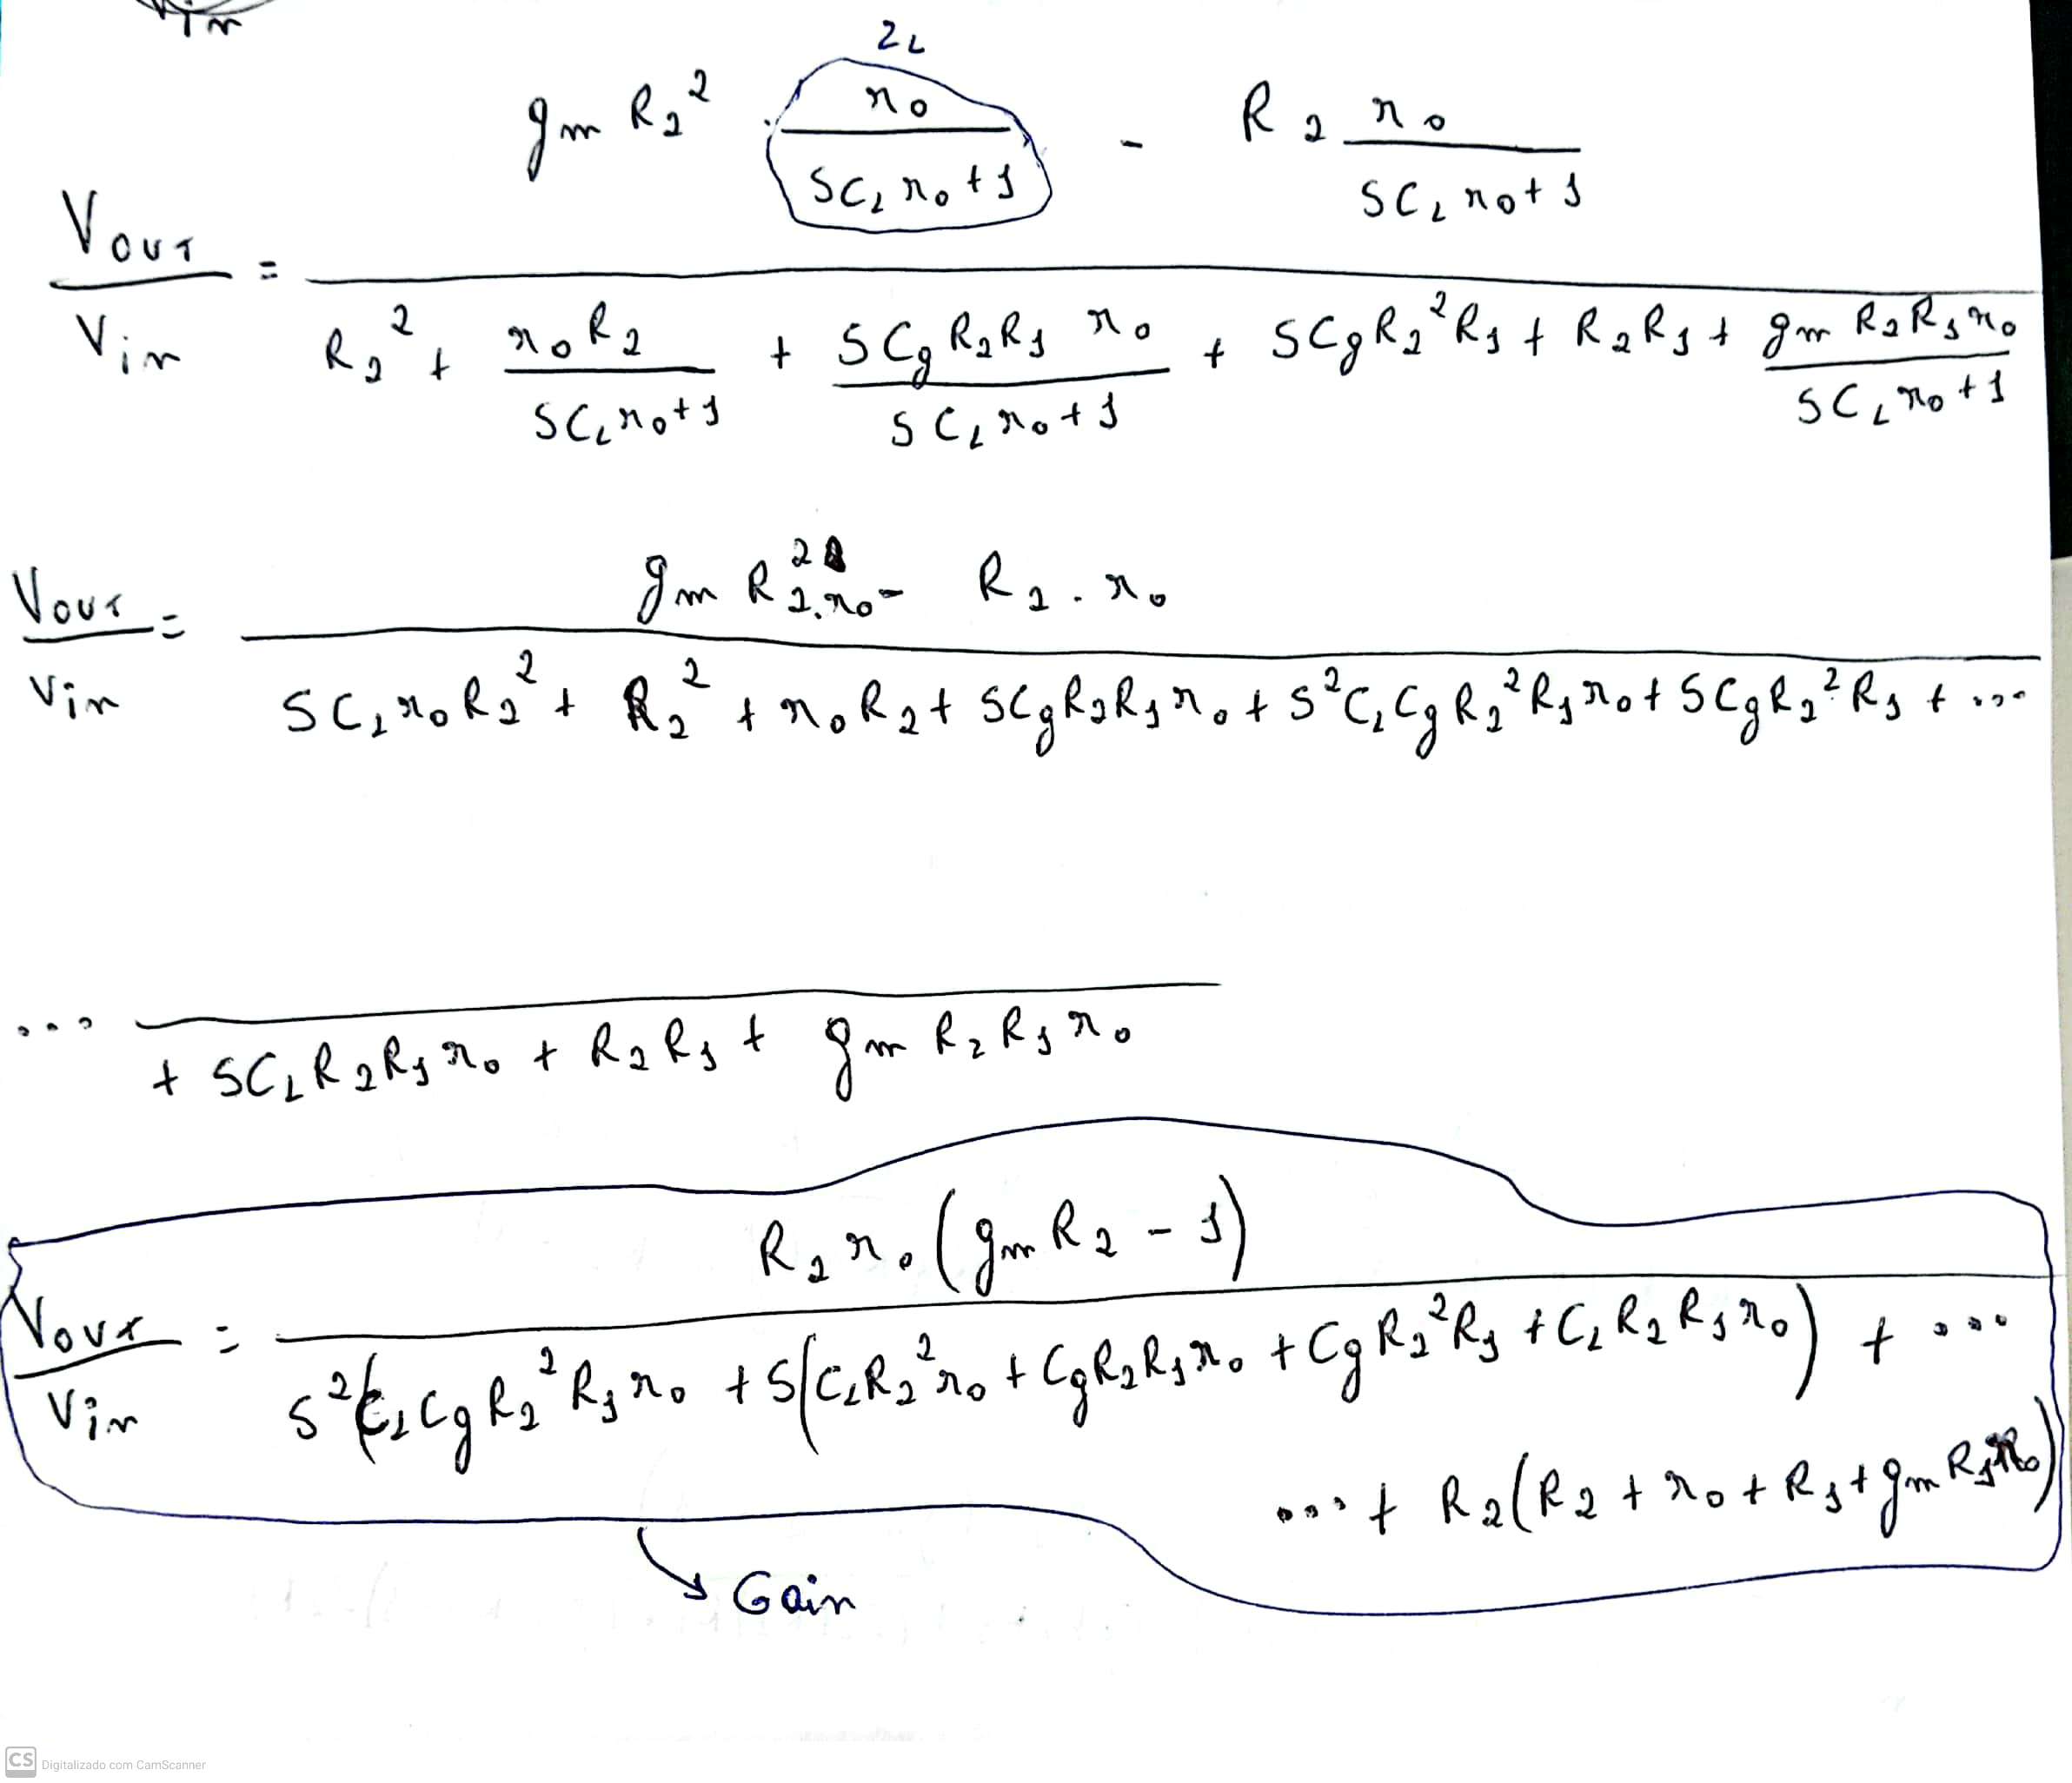 Vin
Z_L
V_out / V_in = (g_m R_2^2 · r_o / (SC_L r_o + 1) - R_2 r_o / (SC_L r_o + 1)) / (R_2^2 + r_o R_2 / (SC_L r_o + 1) + SC_g R_2 R_1 r_o / (SC_L r_o + 1) + SC_g R_2^2 R_1 + R_2 R_1 + g_m R_2 R_1 r_o / (SC_L r_o + 1))
V_out / V_in = (g_m R_2^2 . r_o - R_2 . r_o) / (SC_L r_o R_2^2 + R_2^2 + r_o R_2 + SC_g R_2 R_1 r_o + S^2 C_L C_g R_2^2 R_1 r_o + SC_g R_2^2 R_1 + ...
... + SC_L R_2 R_1 r_o + R_2 R_1 + g_m R_2 R_1 r_o
V_out / V_in = R_2 r_o (g_m R_2 - 1) / S^2 (C_L C_g R_2^2 R_1 r_o + S(C_L R_2^2 r_o + C_g R_2 R_1 r_o + C_g R_2^2 R_1 + C_L R_2 R_1 r_o) + ...
... + R_2 (R_2 + r_o + R_1 + g_m R_1 r_o)
Gain
CS Digitalizado com CamScanner